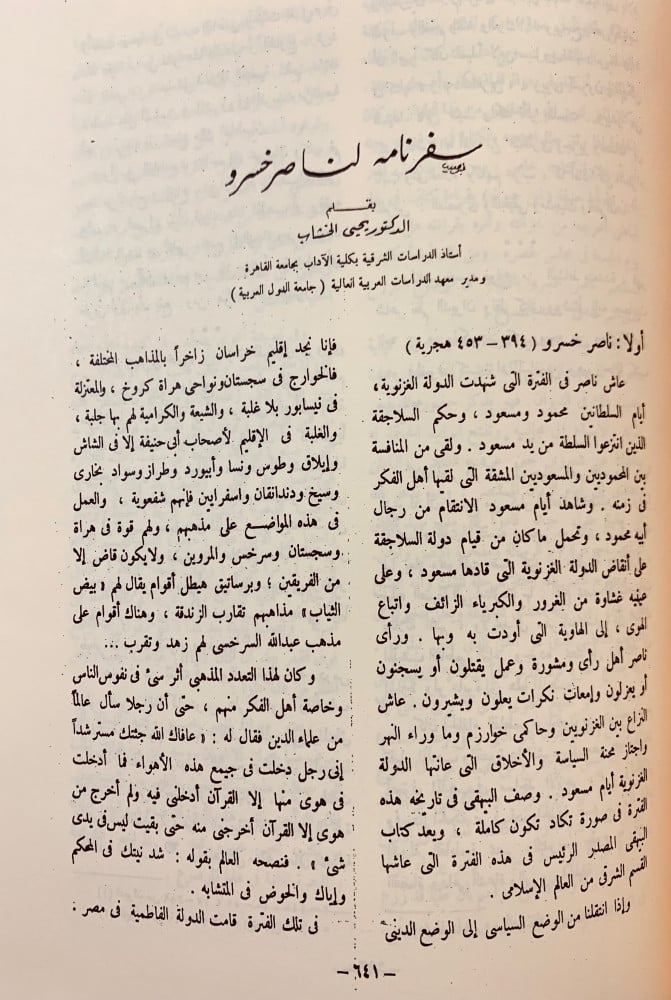 سفرنامه لناصر خسرو
بقلم
الدكتور يحيى الخشاب
أستاذ الدراسات الشرقية بكلية الآداب بجامعة القاهرة
ومدير معهد الدراسات العربية العالية ( جامعة الدول العربية )
أولا : ناصر خسرو ( ٣٩٤ – ٤٥٣ هجرية )
عاش ناصر فى الفترة التى شهدت الدولة الغزنوية ،
أيام السلطانين محمود ومسعود ، وحكم السلاجقة
الذين انتزعوا السلطة من يد مسعود . ولقى من المنافسة
بين المحموديين والمسعوديين المشقة التى لقيها أهل الفكر
فى زمنه . وشاهد أيام مسعود الانتقام من رجال
أبيه محمود ، وتحمل ما كان من قيام دولة السلاجقة
على أنقاض الدولة الغزنوية التى قادها مسعود ، وعلى
عينيه غشاوة من الغرور والكبرياء الزائف واتباع
الهوى ، إلى الهاوية التى أودت به وبها . ورأى
ناصر أهل رأى ومشورة وعمل يقتلون أو يسجنون
أو يعزلون وإمعات نكرات يعلون ويشيرون . عاش
النزاع بين الغزنويين وحاكمى خوارزم وما وراء النهر
واجتاز محنة السياسة والأخلاق التى عانتها الدولة
الغزنوية أيام مسعود . وصف البيهقى فى تاريخه هذه
الفترة فى صورة تكاد تكون كاملة ، ويعد كتاب
البيهقى المصدر الرئيس فى هذه الفترة التى عاشها
القسم الشرقى من العالم الإسلامى .
وإذا انتقلنا من الوضع السياسى إلى الوضع الدينى
فإنا نجد إقليم خراسان زاخراً بالمذاهب المختلفة ،
فالخوارج فى سجستان ونواحى هراة كروخ ، والمعتزلة
فى نيسابور بلا غلبة ، والشيعة والكرامية لهم بها جلبة ،
والغلبة فى الإقليم لأصحاب أبى حنيفة إلا فى الشاش
وإيلاق وطوس ونسا وأبيورد وطراز وسواد بخارى
وسيخ ودندانقان واسفرايين فإنهم شفعوية ، والعمل
فى هذه المواضع على مذهبهم ، ولهم قوة فى هراة
وسجستان وسرخس والمروين ، ولا يكون قاض إلا
من الفريقين ؛ وبرساتيق هيطل أقوام يقال لهم « بيض
الثياب » مذاهبهم تقارب الزندقة ، وهناك أقوام على
مذهب عبدالله السرخسى لهم زهد وتقرب ...
وكان لهذا التعدد المذهبى أثر سئ فى نفوس الناس
وخاصة أهل الفكر منهم ، حتى أن رجلا سأل عالماً
من علماء الدين فقال له : « عافاك الله جئتك مسترشداً
إنى رجل دخلت فى جميع هذه الأهواء فما أدخلت
فى هوى منها إلا القرآن أدخلنى فيه ولم أخرج من
هوى إلا القرآن أخرجنى منه حتى بقيت ليس فى يدى
شئ » . فنصحه العالم بقوله : شد نيتك فى المحكم
وإياك والخوض فى المتشابه .
فى تلك الفترة قامت الدولة الفاطمية فى مصر .
– ٦٤١ –